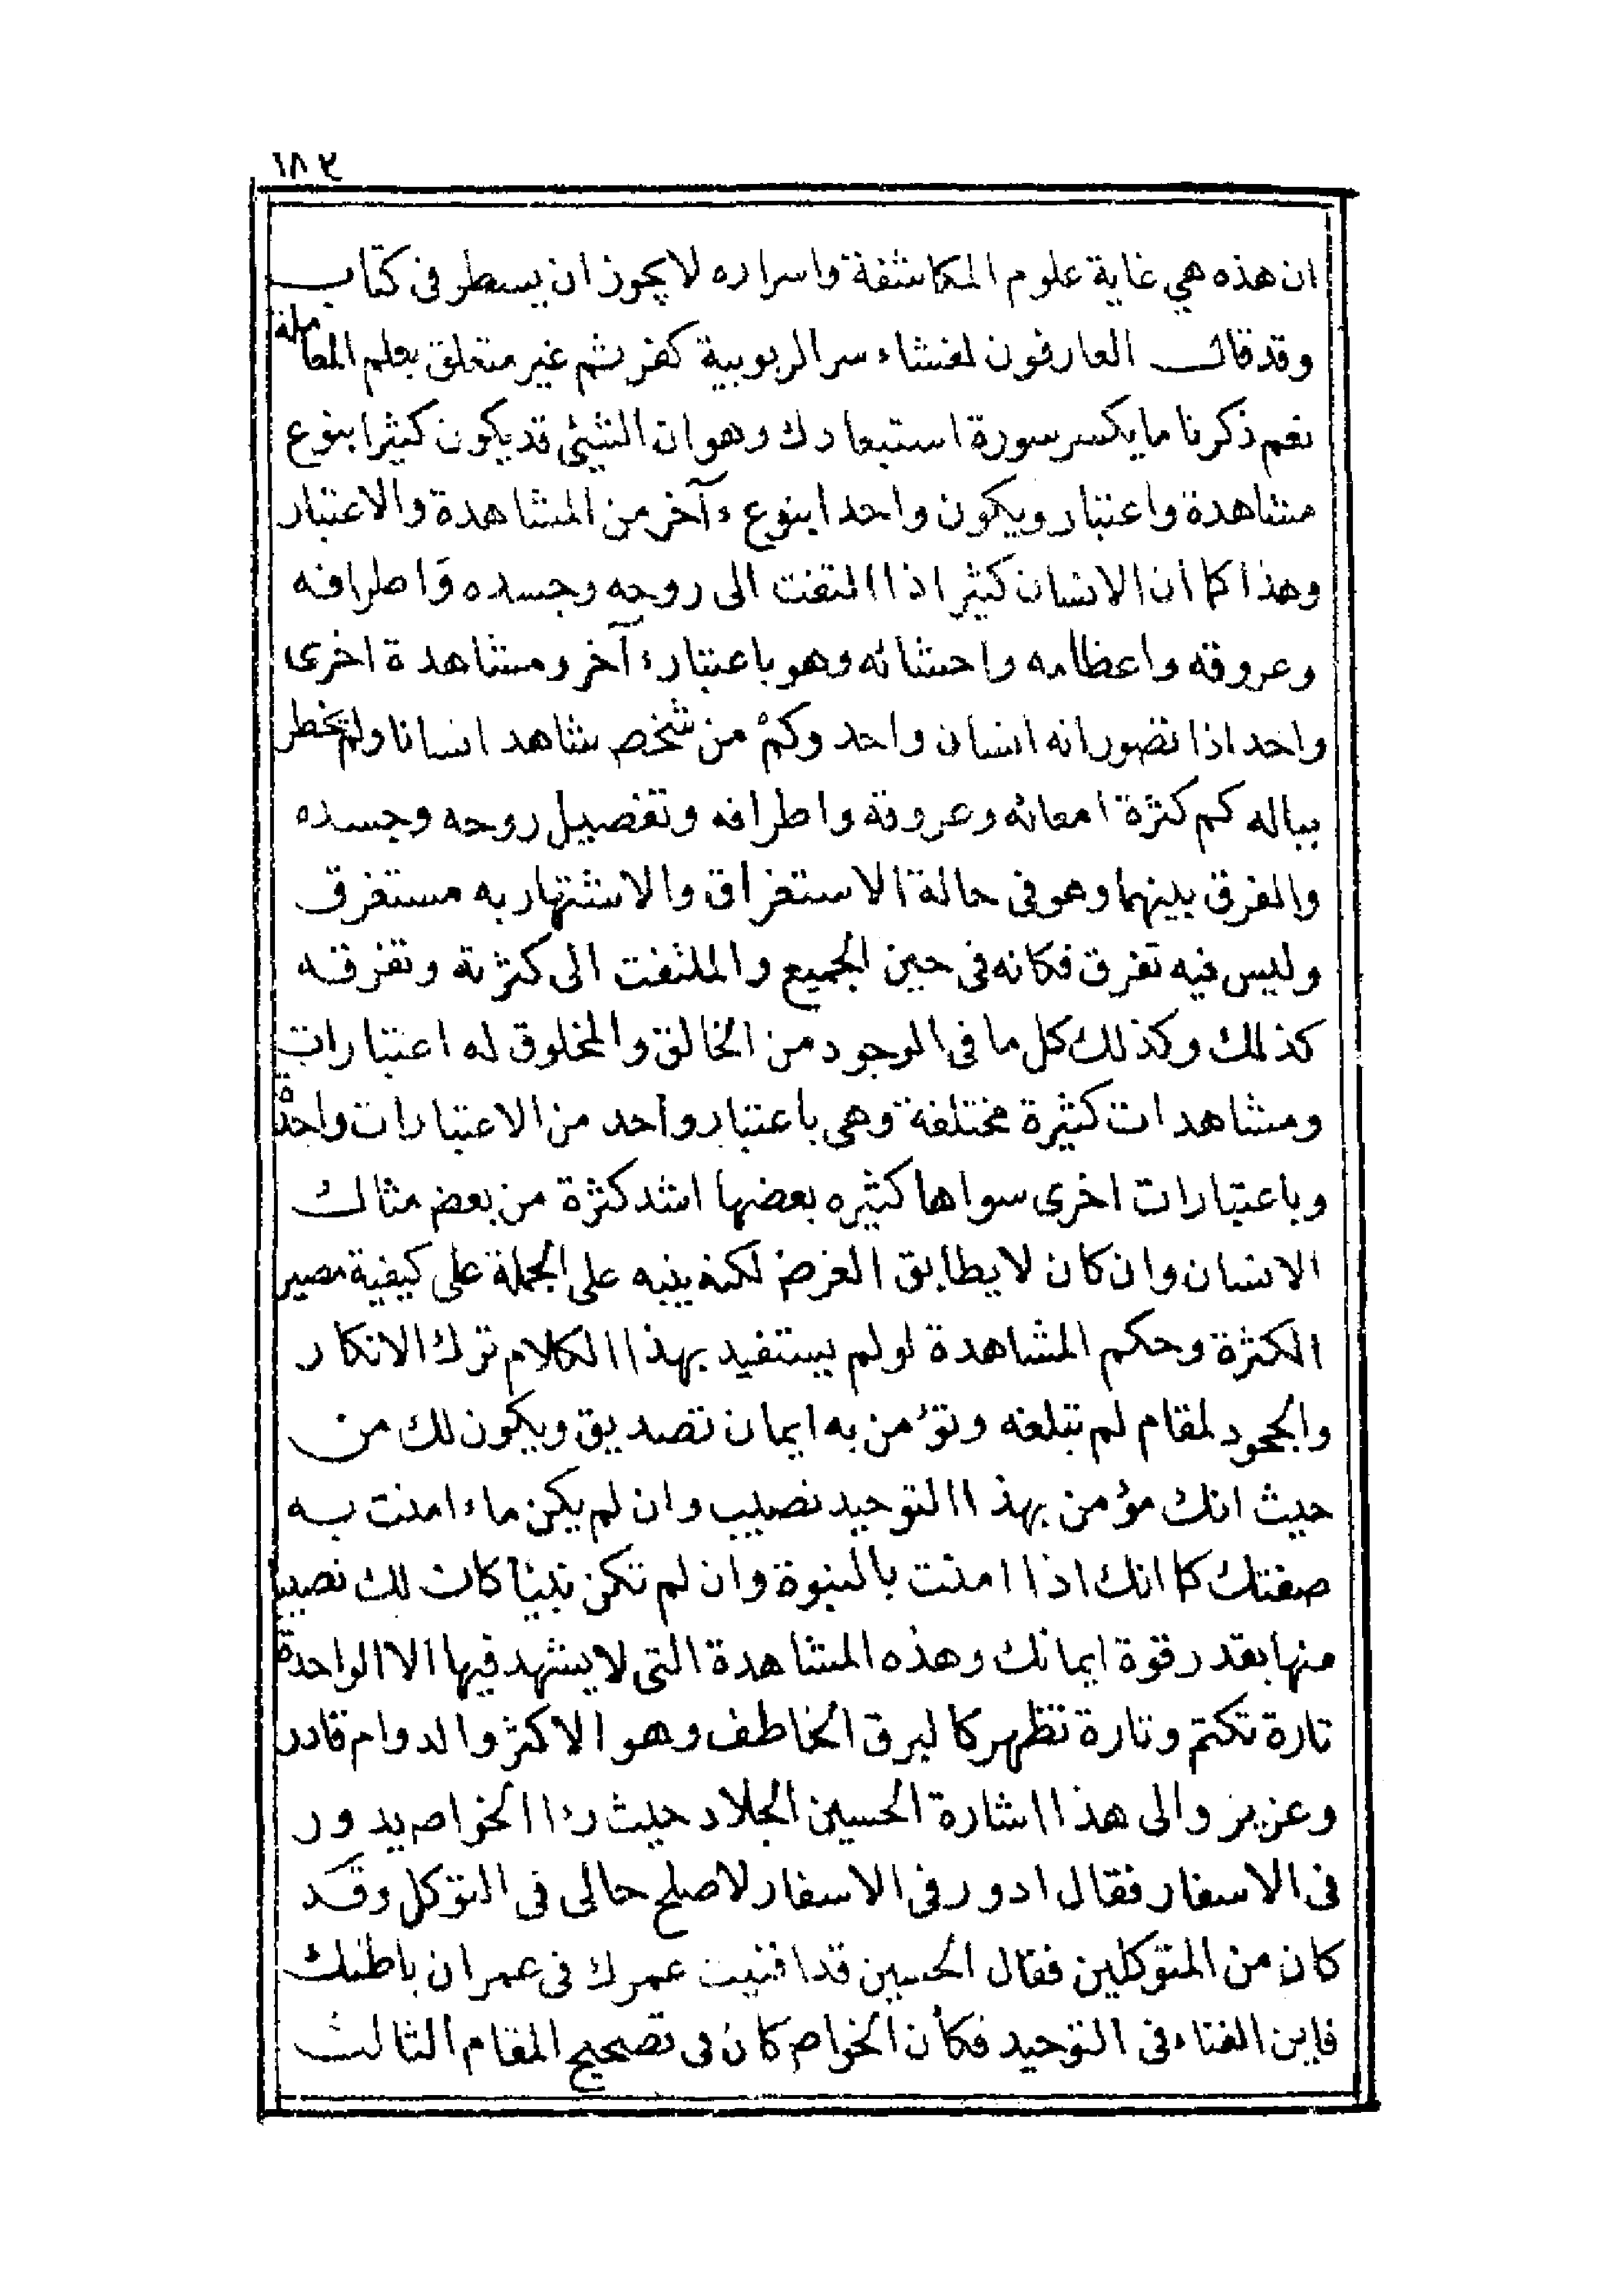 ١٨٣
ان هذه هي غاية علوم المكاشفة واسراره لا يجوز ان يسطر فى كتاب
وقد قال العارفون لفشاء سر الربوبية كفر ثم غير متعلق بعلم المعاملة
نعم ذكرنا ما يكسر سورة استبعادك وهو ان الشيئ قد يكون كثيرا بنوع
مشاهدة واعتبار ويكون واحدا بنوع ءآخر من المشاهدة والاعتبار
وهذا كما ان الانسان كثير اذا التفت الى روحه وجسده واطرافه
وعروقه واعظامه واحشائه وهو باعتبار ءآخر ومشاهدة اخرى
واحد اذا تصور انه انسان واحد وكم من شخص شاهد انسانا ولم يخطر
بباله كم كثرة امعائه وعروقه واطرافه وتفصيل روحه وجسده
والفرق بينهما وهو فى حالة الاستغراق والاشتهار به مستغرق
وليس فيه تفرق فكانه فى حين الجميع والملتفت الى كثرته وتفرقه
كذلك وكذلك كل ما فى الوجود من الخالق والمخلوق له اعتبارات
ومشاهدات كثيرة مختلفة وهى باعتبار واحد من الاعتبارات واحدة
وباعتبارات اخرى سواها كثيره بعضها اشد كثرة من بعض مثالك
الانسان وان كان لا يطابق الغرض لكنه ينبه على الجملة على كيفية مصير
الكثرة وحكم المشاهدة لو لم يستفيد بهذا الكلام ترك الانكار
والجحود لمقام لم تبلغه وتؤمن به ايمان تصديق ويكون لك من
حيث انك مؤمن بهذا التوحيد نصيب وان لم يكن ماء امنت به
صفتك كما انك اذا امنت بالنبوة وان لم تكن نبيئا كان لك نصيب
منها بقدر قوة ايمانك وهذه المشاهدة التى لا يشهد فيها الا الواحدة
تارة تكتم وتارة تظهر كا لبرق الخاطف وهو الاكثر والدوام قادر
وعزيز والى هذا اشارة الحسين الجلاد حيث رءا الخواص يدور
فى الاسفار فقال ادور فى الاسفار لاصلح حالى فى التوكل وقد
كان من المتوكلين فقال الحسين قد افنيت عمرك فى عمران باطنك
فاين الفناء فى التوحيد فكأن الخواص كان فى تصحيح المقام الثالث